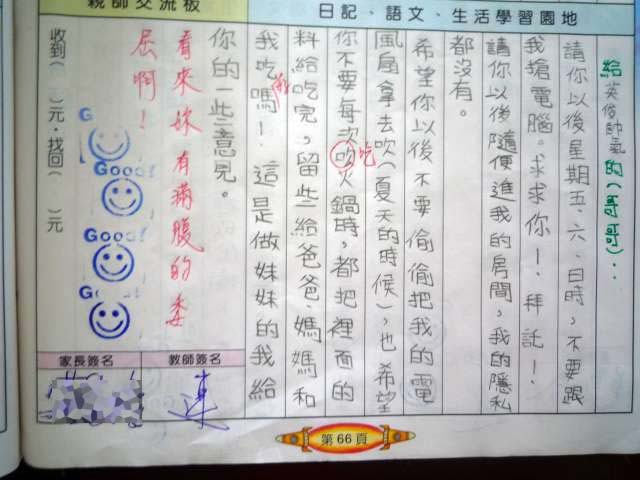 日記、語文、生活學習園地
給英俊帥氣的(哥哥):..
請你以後星期五、六、日時,不要跟
我搶電腦。求求你!、拜託!、
請你以後隨便進我的房間,我的隱私
都沒有。
希望你以後不要偷偷把我的電
風扇拿去吹(夏天的時候),也希望
你不要每次吹火鍋時,都把裡面的
吃
料給吃完,留些給爸爸、媽媽和
我吃嗎!這是做妹妹的我給
你的一些意見。
親師交流板
看來妳有滿腹的委
屈啊!
Good!
Good!
收到( )元,找回( )元
教師簽名
連
家長簽名
第66頁